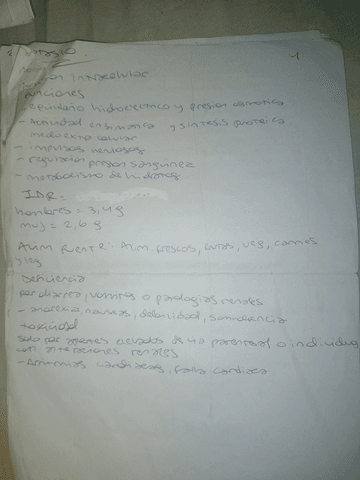 Potasio.
1
ion Intracelular
funciones
equilibrio hidroelectrico y presion osmotica
- actividad enzimatica y sintesis proteica
medio extracelular
- impulsos nerviosos
- regulacion presion sanguinea
- metabolismo de hidratos
IDR=
hombres = 3,4 g
muj = 2,6 g
Alim fuente: Alim. frescos, frutas, veg, carnes
y leg
Deficiencia
por diarrea, vomitos o patologias renales
- anorexia nauseas, debilidad, somnolencia
toxicidad
solo por aportes elevados de via parenteral o individuos
con alteraciones renales
- Arritmias cardiacas, falla cardiaca